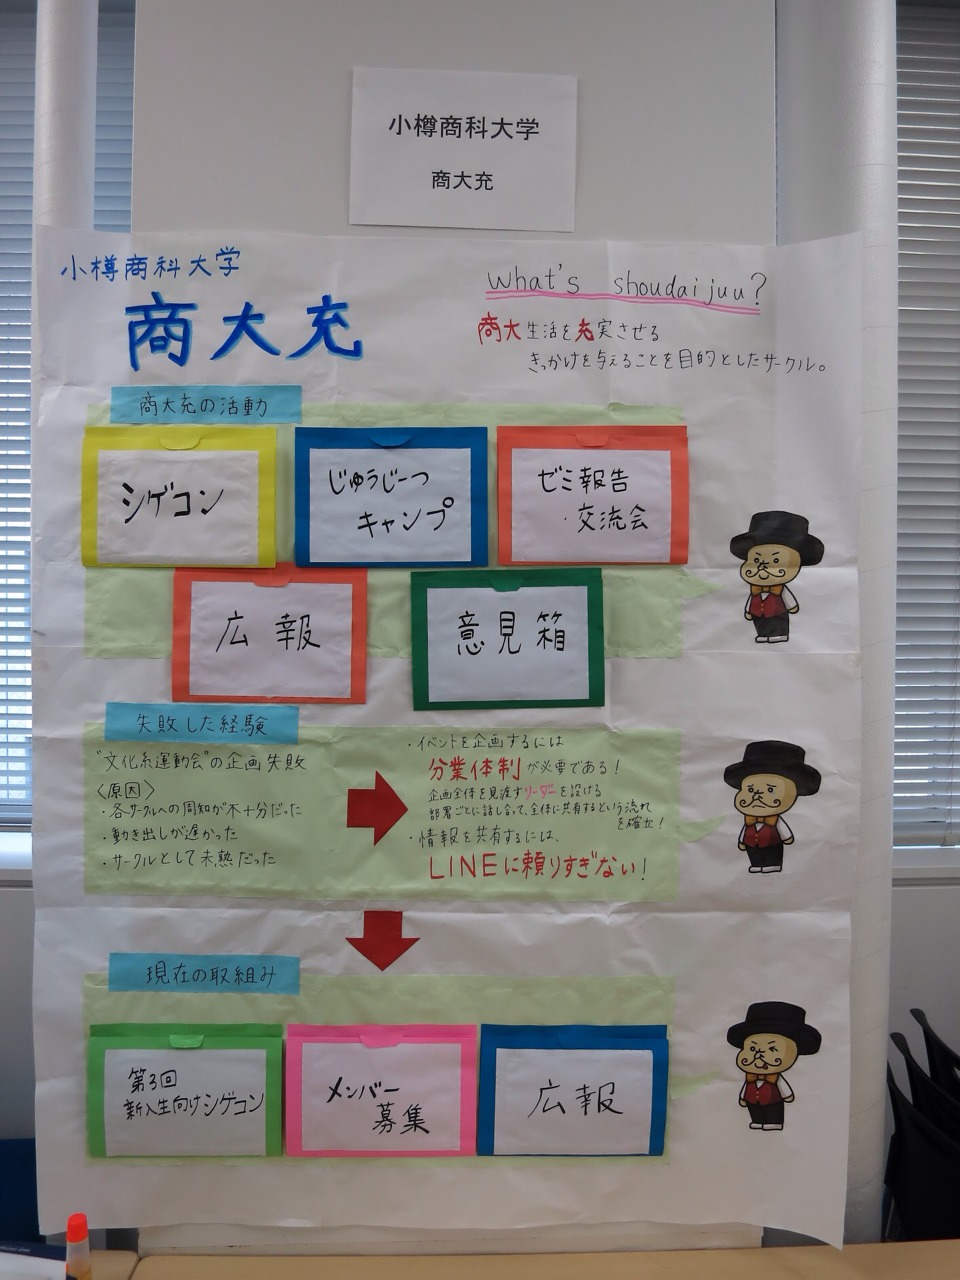 小樽商科大学
商大充
小樽商科大学
商大充
what's shoudaijuu?
商大生活を充実させる
きっかけを与えることを目的としたサークル。
商大充の活動
シゲコン
じゅうじーつ
キャンプ
ゼミ報告
・交流会
広報
意見箱
失敗した経験
"文化系運動会"の企画失敗
〈原因〉
・各サークルへの周知が不十分だった
・動き出しが遅かった
・サークルとして未熟だった
・イベントを企画するには
分業体制が必要である!
企画全体を見渡すリーダーを設ける
部署ごとに話し合って、全体に共有するという流れ
を確立!
・情報を共有するには、
LINEに頼りすぎない!
現在の取組み
第3回
新入生向けシゲコン
メンバー
募集
広報